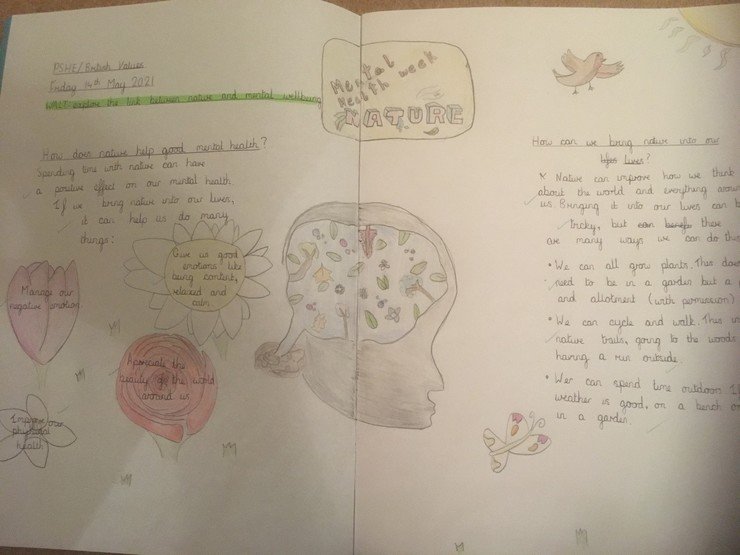 PSHE/British Values
Friday 14th May 2021
WALT explore the link between nature and mental wellbeing
Mental
Health week
NATURE
How does nature help good mental health?
Spending time with nature can have
a positive effect on our mental health.
If we bring nature into our lives,
it can help us do many
things:
Give us good
emotions like
being content,
relaxed and
calm
Manage our
negative emotion
Apreciate the
beauty of the world
around us
Improve our
physical
health
How can we bring nature into our
lives?
Nature can improve how we think
about the world and everything
us. Bringing it into our lives can
tricky, but there
are many ways we can do
• We can all grow plants. This
need to be in a garden but a
and allotment (with permission)
• We can cycle and walk. This
nature trails, going to the woods
having a run outside.
• Wer can spend time outdoors.
weather is good, on a bench
in a garden.